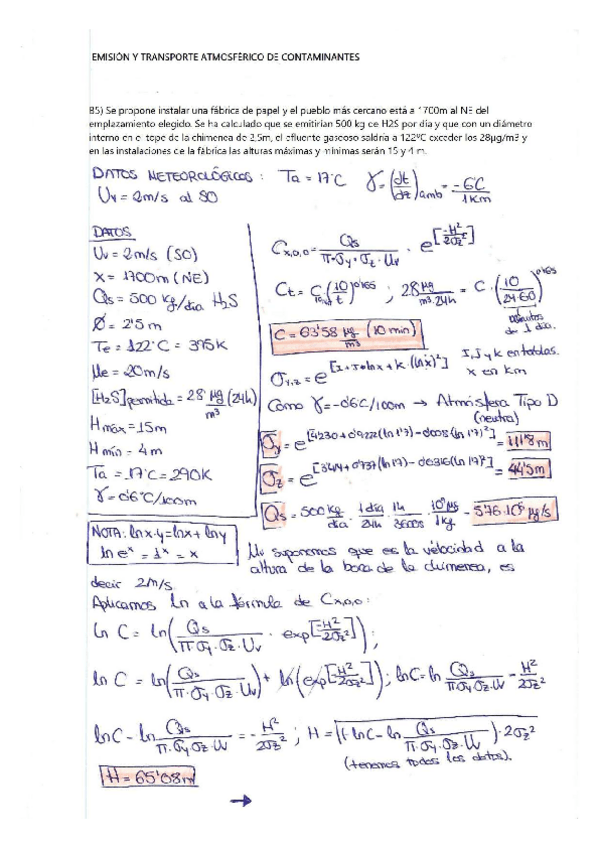 EMISIÓN Y TRANSPORTE ATMOSFÉRICO DE CONTAMINANTES
B5) Se propone instalar una fábrica de papel y el pueblo más cercano está a 1700m al NE del
emplazamiento elegido. Se ha calculado que se emitirían 500 kg de H2S por día y que con un diámetro
interno en el tope de la chimenea de 2,5m, el efluente gaseoso saldría a 122ºC exceder los 28µg/m3 y
en las instalaciones de la fábrica las alturas máximas y mínimas serán 15 y 4 m.
DATOS METEOROLÓGICOS: Ta = 17ºC γ = (dt/dz)amb = -6ºC/1Km
Uv = 2m/s al SO
DATOS
Uv = 2m/s (SO)
X = 1700m (NE)
Qs = 500 kg/día H2S
Ø = 2'5 m
Te = 122ºC = 395K
μe = 20m/s
[H2S]permitida = 28 µg/m³ (24h)
Hmáx = 15m
Hmín = 4m
Ta = 17ºC = 290K
γ = 0'6ºC/100m
NOTA: ln x·y = lnx + lny
ln e^x = 1^x = x
Cx,0,0 = Qs/(π·σy·σz·Uv) · e^[-H²/2σz²]
Ct = C (10/t)^0'165 ; 28 µg/m³·24h = C · (10/24·60)^0'165
minutos de 1 día.
C = 63'58 µg/m³ (10 min)
σy,z = e^[I + J·lnx + K·(lnx)²] I, J y K en tablas.
x en Km
Como γ = -0'6ºC/100m → Atmósfera Tipo D
(neutra)
σy = e^[4'230 + 0'922(ln 1'7) - 0'008(ln 1'7)²] = 111'8m
σz = e^[3'414 + 0'737(ln 1'7) - 0'0316(ln 1'7)²] = 44'5m
Qs = 500 kg/día · 1día/24h · 1h/3600s · 10⁹µg/1kg = 5'76·10⁶ µg/s
Uv suponemos que es la velocidad a la
altura de la boca de la chimenea, es
decir 2m/s
Aplicamos ln a la fórmula de Cx,0,0:
ln C = ln(Qs/(π·σy·σz·Uv) · exp[-H²/2σz²]);
ln C = ln(Qs/(π·σy·σz·Uv)) + ln(exp[-H²/2σz²]); lnC = ln Qs/(π·σy·σz·Uv) - H²/2σz²
lnC - ln Qs/(π·σy·σz·Uv) = -H²/2σz² ; H = √((-lnC - ln Qs/(π·σy·σz·Uv))·2σz²
(tenemos todos los datos).
H = 65'08m
→